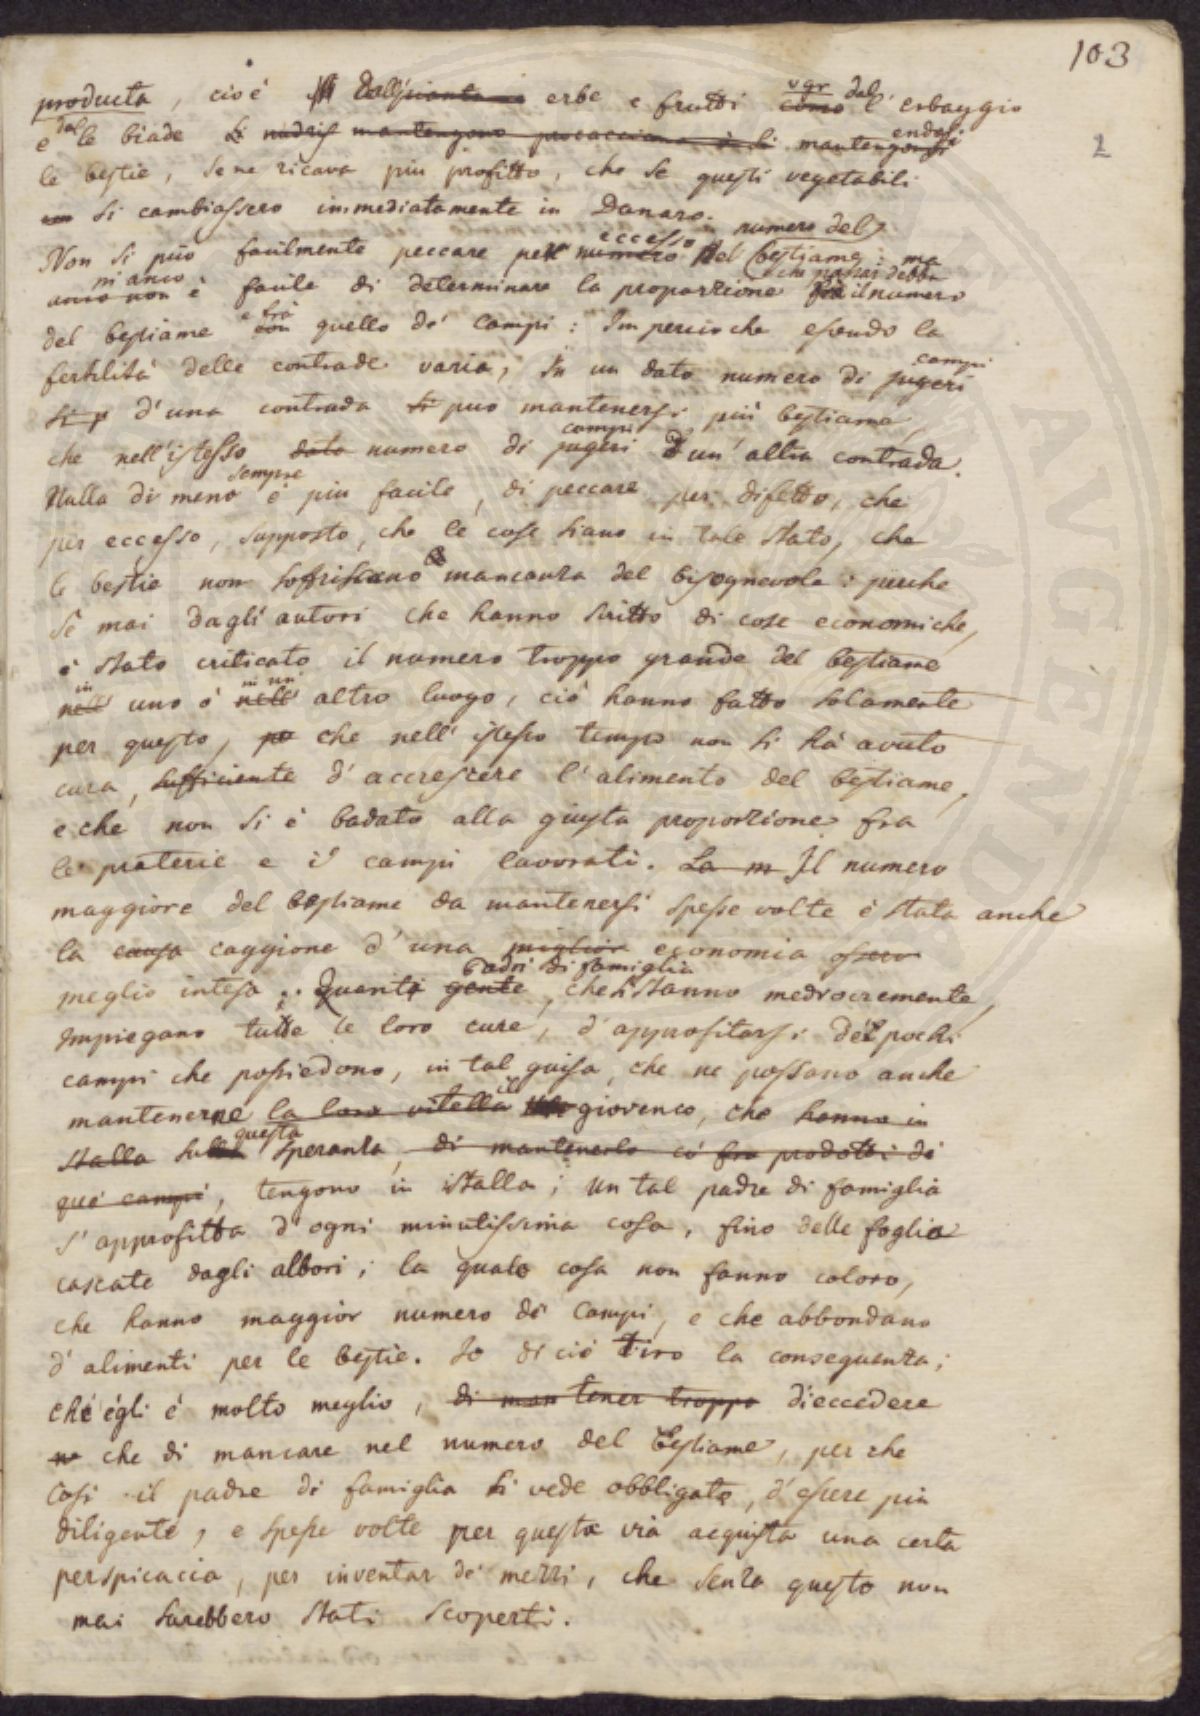 103
2
producta, cioè erbe e frutti vgr dal l'erbaggio
e dal le biade si mantengono mantengonsi
le bestie, se ne ricava più profitto, che se questi vegetabili
si cambiassero immediatamente in Danaro.
Non si può facilmente peccare per numero eccesso del numero del bestiame: ma
ni anco è facile di determinare la proporzione che passar debba fra il numero
del bestiame e fra con quello de' campi: Imperciochè essendo la
fertilità delle contrade varia, In un dato numero di jugeri campi
si p d'una contrada si può mantenersi più bestiame,
che nell'istesso dato numero di jugeri campi d'un'altra contrada.
Nulla di meno sempre è più facile, di peccare per difetto, che
per eccesso, supposto, che le cose siano in tale stato, che
le bestie non soffriscano mancanza del bisognevole: perche
se mai dagli autori che hanno scritto di cose economiche,
è stato criticato il numero troppo grande del bestiame
nell' in uno ò nell' in un altro luogo, ciò hanno fatto solamente
per questo, pe che nell'istesso tempo non si hà avuto
cura, sufficiente d'accrescere l'alimento del bestiame,
e che non si è badato alla giusta proporzione fra
le praterie e i campi lavorati. La m Il numero
maggiore del bestiame da mantenersi spesse volte è stata anche
la causa caggione d'una miglior economia
meglio intesa: Quanti gente Padri di famiglia, che stanno mediocremente,
impiegano tutte le loro cure, d'approfitarsi dei pochi
campi che possiedono, in tal guisa, che ne possano anche
mantenerne la loro vitella il giovenco, che hanno in
stalla sulla questa speranza, di mantenerlo cò fra prodotti di
que' campi, tengono in istalla; un tal padre di famiglia
s'approfitta d'ogni minutissima cosa, fino delle foglie
cascate dagli albori; la quale cosa non fanno coloro,
che hanno maggior numero di campi, e che abbondano
d'alimenti per le bestie. Io di ciò tiro la consequenza;
chè egli è molto meglio, di mantener troppo di eccedere
che di mancare nel numero del bestiame, per che
Così il padre di famiglia si vede obbligato, d'essere più
diligente, e spesse volte per questa via acquista una certa
perspicacia, per inventar de' mezzi, che senza questo non
mai sarebbero stati scoperti.